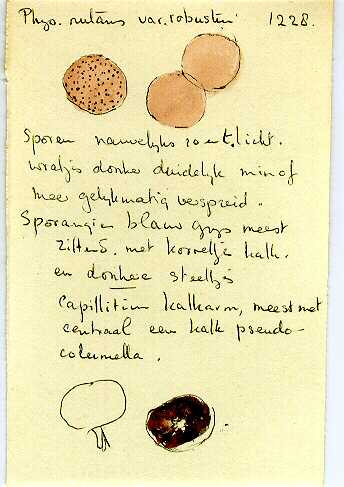 Phys. nutans var. robustum 1228.
Sporen nauwelijks 10 licht.
wratjes donker duidelijk min of
meer gelijkmatig verspreid.
Sporangiën blauw grijs meest
zittend. met korreltje kalk.
en donkere steeltjes
Capillitium kalkarm, meest met
centraal een kalk pseudo-
columella.